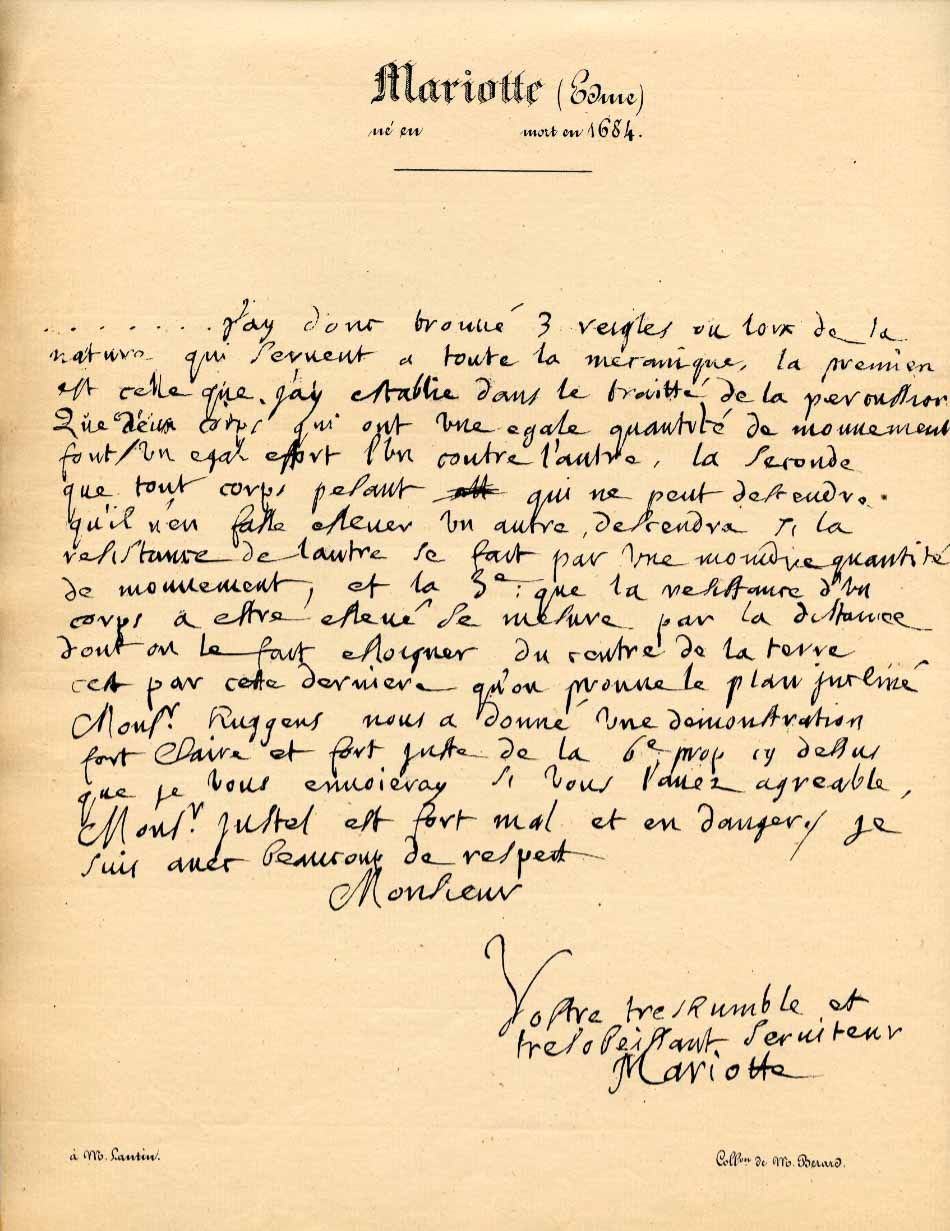 Mariotte (Edme)
né en mort en 1684.
. . . . . . . J'ay donc trouué 3 reigles ou loix de la
nature qui seruent a toute la mecanique, la premiere
est celle que j'ay establie dans le traitté de la percussion
Que deux corps qui ont vne egale quantité de mouuement
font vn egal effort l'vn contre l'autre, la seconde
que tout corps pesant qui ne peut descendre
qu'il n'en fasse esleuer vn autre, descendra si la
resistance de lautre se fait par vne moindre quantité
de mouuement, et la 3e: que la resistance d'vn
corps a estre esleué se mesure par la distance
dont on le fait esloigner du centre de la terre
cest par cette derniere qu'on prouue le plan jncliné
Monsr. Huggens nous a donné vne demonstration
fort claire et fort juste de la 6e prop cy dessus
que je vous enuoieray si vous l'auez agreable,
Monsr. Justel est fort mal et en danger./ je
suis auec beaucoup de respect
Monsieur
Vostre treshumble et
tresobeissant seruiteur
Mariotte
à M. Lantin.
Collon de M. Berard.